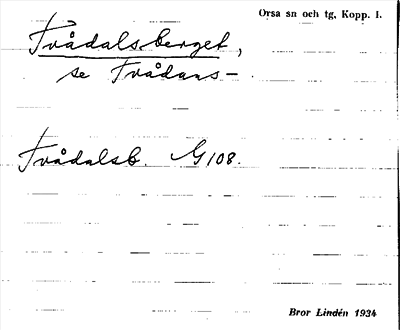 Orsa sn och tg, Kopp. l.
Tvådalsberget,
se Tvådans-
Tvådalsb. G108.
Bror Lindén 1934